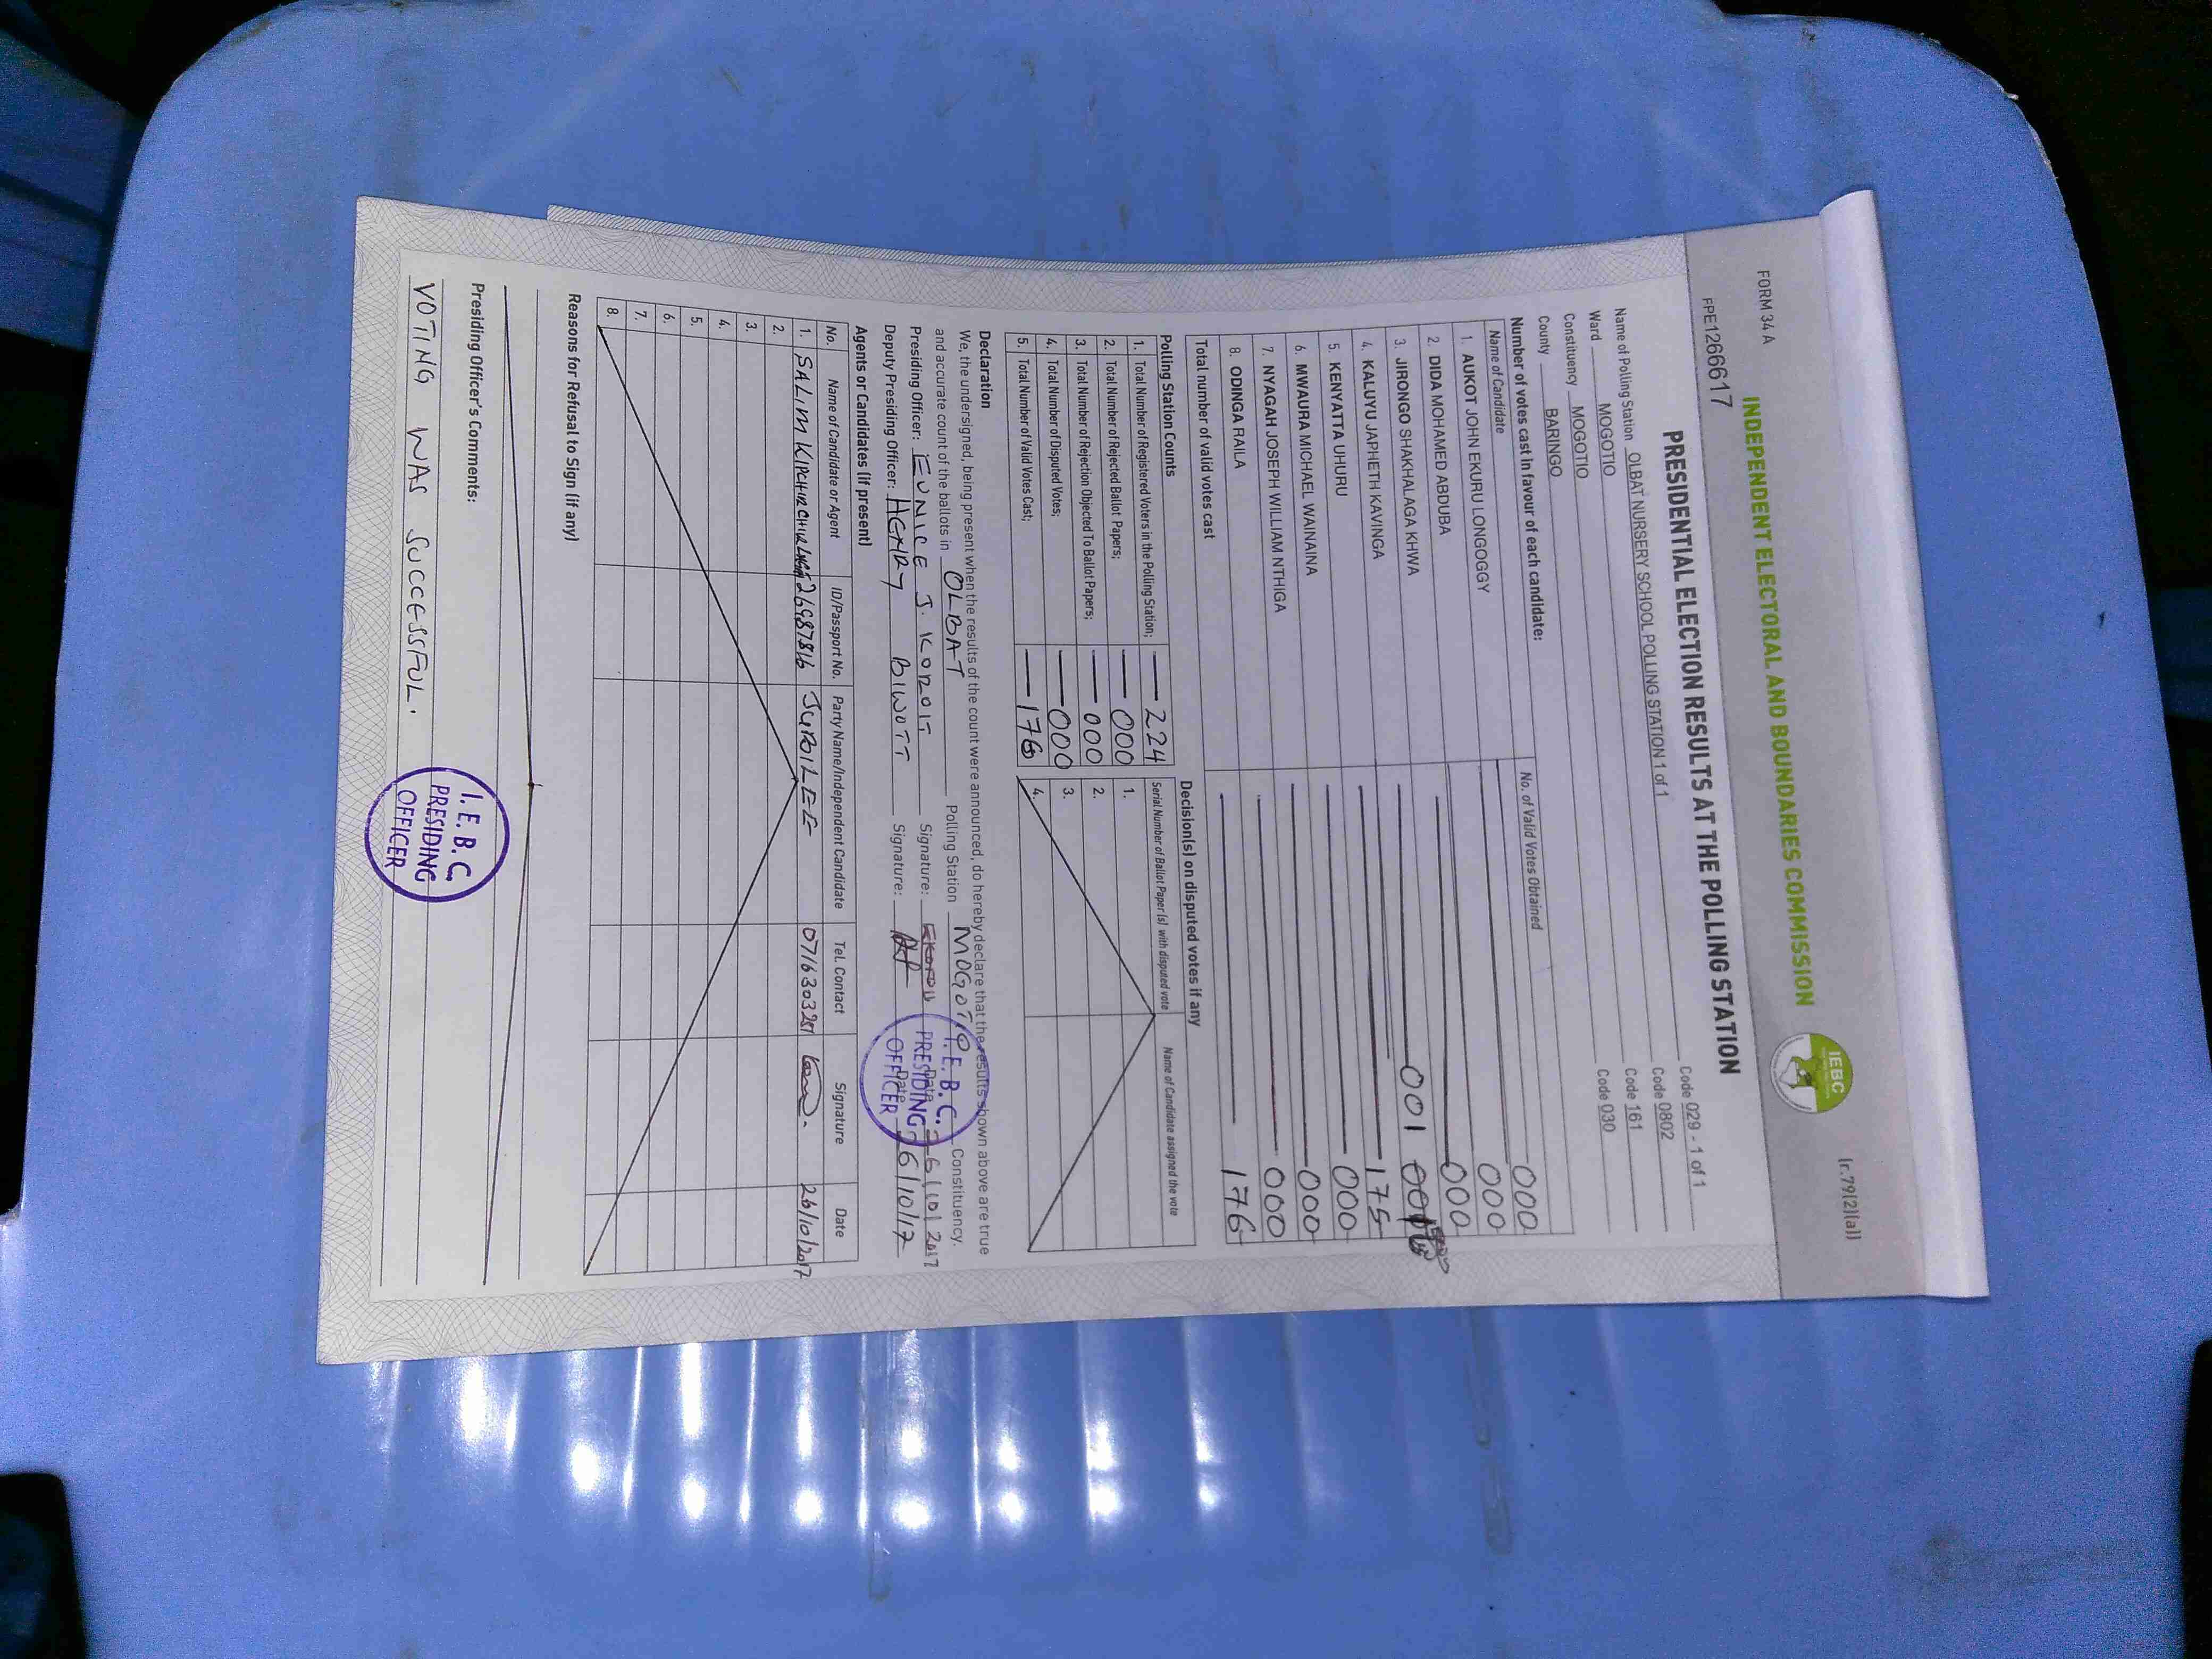 FORM 34A
(r.79(2)(a))
INDEPENDENT ELECTORAL AND BOUNDARIES COMMISSION
IEBC
FPE1266617
PRESIDENTIAL ELECTION RESULTS AT THE POLLING STATION
Name of Polling Station OLBAT NURSERY SCHOOL POLLING STATION 1 of 1 Code 029 - 1 of 1
Ward MOGOTIO Code 0802
Constituency MOGOTIO Code 161
County BARINGO Code 030
Number of votes cast in favour of each candidate:
Name of Candidate No. of Valid Votes Obtained
1. AUKOT JOHN EKURU LONGOGGY 000
2. DIDA MOHAMED ABDUBA 000
3. JIRONGO SHAKHALAGA KHWA 000
4. KALUYU JAPHETH KAVINGA 001 001
5. KENYATTA UHURU 175
6. MWAURA MICHAEL WAINAINA 000
7. NYAGAH JOSEPH WILLIAM NTHIGA 000
8. ODINGA RAILA 000
Total number of valid votes cast 176
Polling Station Counts
1. Total Number of Registered Voters in the Polling Station; 224
2. Total Number of Rejected Ballot Papers; 000
3. Total Number of Rejection Objected To Ballot Papers; 000
4. Total Number of Disputed Votes; 000
5. Total Number of Valid Votes Cast; 176
Decision(s) on disputed votes if any
Serial Number of Ballot Paper (s) with disputed vote Name of Candidate assigned the vote
1.
2.
3.
4.
Declaration
We, the undersigned, being present when the results of the count were announced, do hereby declare that the results shown above are true
and accurate count of the ballots in OLBAT Polling Station MOGOTIO Constituency.
Presiding Officer: EUNICE J. KOROIT Signature: Date 26/10/2017
Deputy Presiding Officer: HENRY BIWOTT Signature: Date 26/10/17
I.E.B.C.
PRESIDING
OFFICER
Agents or Candidates (if present)
No. Name of Candidate or Agent ID/Passport No. Party Name/Independent Candidate Tel. Contact Signature Date
1. SALIM 26987816 JUBILEE 26/10/2017
2.
3.
4.
5.
6.
7.
8.
Reasons for Refusal to Sign (if any)
Presiding Officer's Comments:
VOTING WAS SUCCESSFUL.
I.E.B.C.
PRESIDING
OFFICER